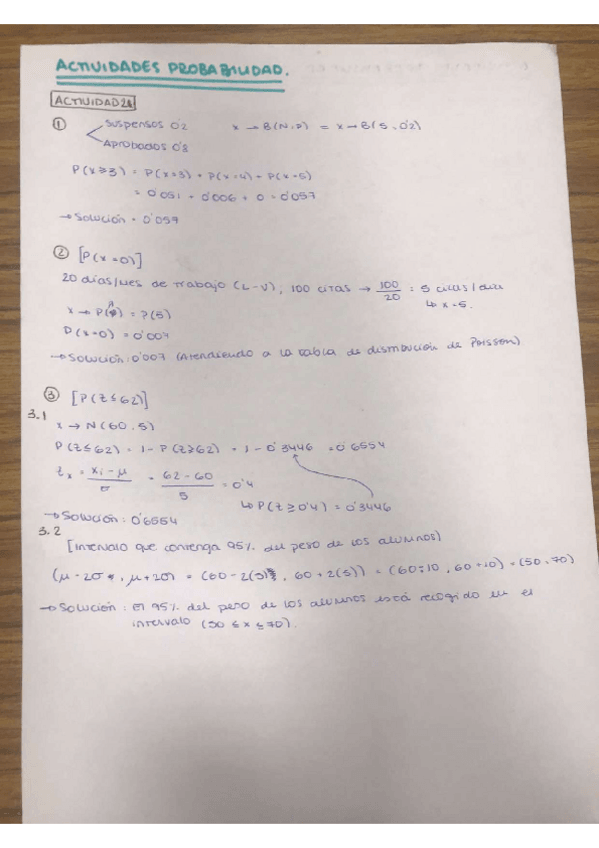 ACTIVIDADES PROBABILIDAD.
ACTIVIDAD 2
① Suspensos 0'2 x → B(N,P) = x → B(5, 0'2)
Aprobados 0'8
P(x≥3) = P(x=3) + P(x=4) + P(x=5)
= 0'051 + 0'006 + 0 = 0'057
→ Solución = 0'057
② [P(x=0)]
20 días/mes de trabajo (L-V), 100 citas → 100/20 = 5 citas/día
↳ x=5.
x → P(λ) = P(5)
P(x=0) = 0'007
→ Solución: 0'007 (Atendiendo a la tabla de distribución de Poisson)
③ [P(z≤62)]
3.1
x → N(60,5)
P(z≤62) = 1 - P(z≥62) = 1 - 0'3446 = 0'6554
zx = xi-μ/σ = 62-60/5 = 0'4
↳ P(z≥0'4) = 0'3446
→ Solución: 0'6554
3.2
[Intervalo que contenga 95% del peso de los alumnos)
(μ-2σ, μ+2σ) = (60-2(5), 60+2(5)) = (60-10, 60+10) = (50,70)
→ Solución: el 95% del peso de los alumnos está recogido en el
intervalo (50≤x≤70).